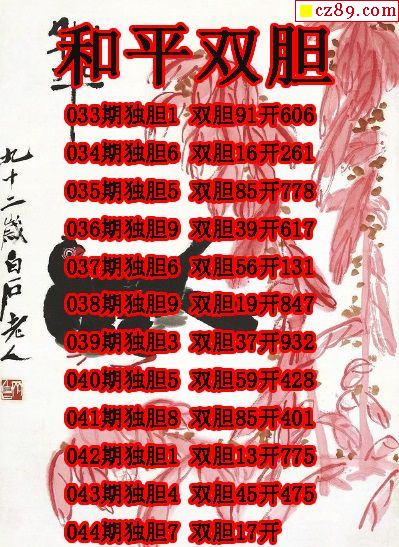 cz89.com
和平双胆
033期独胆1 双胆91开606
034期独胆6 双胆16开261
035期独胆5 双胆85开778
036期独胆9 双胆39开617
037期独胆6 双胆56开131
038期独胆9 双胆19开847
039期独胆3 双胆37开932
040期独胆5 双胆59开428
041期独胆8 双胆85开401
042期独胆1 双胆13开775
043期独胆4 双胆45开475
044期独胆7 双胆17开
九十二岁白石老人